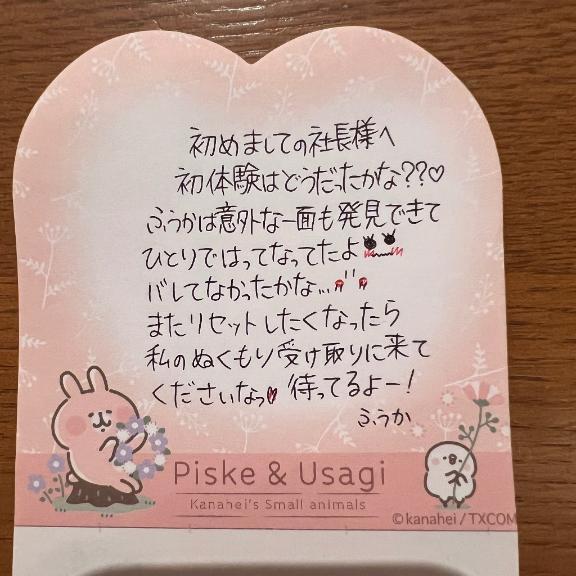 初めましての社長様へ
初体験はどうだったかな??♡
ふうかは意外な一面も発見できて
ひとりではってなってたよ
バレてなかったかな...
またリセットしたくなったら
私のぬくもり受け取りに来て
くださいなっ 待ってるよー!
ふうか
Piske & Usagi
Kanahei's Small animals
©kanahei/TXCOM